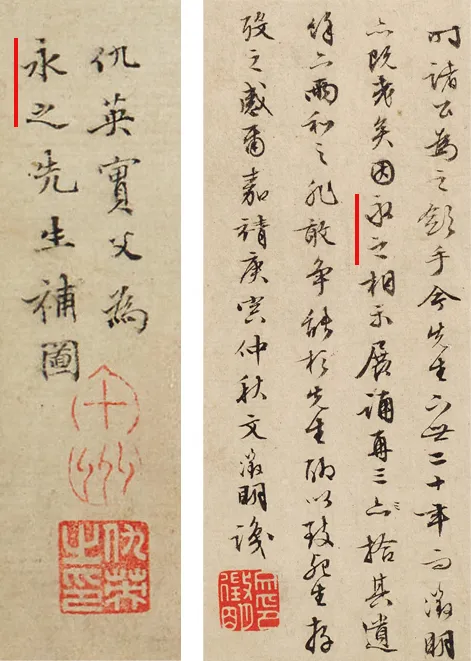 仇英實父為
永之先生補圖
十州
仇英之印
時諸公為之斂手今先生下世二十年而徵明
亦既老矣因永之相示展誦再三亦拾其遺
餘亦兩和之非敢爭能於先生聊以致死生存
歿之感爾嘉靖庚寅仲秋文徵明識
文徵明印